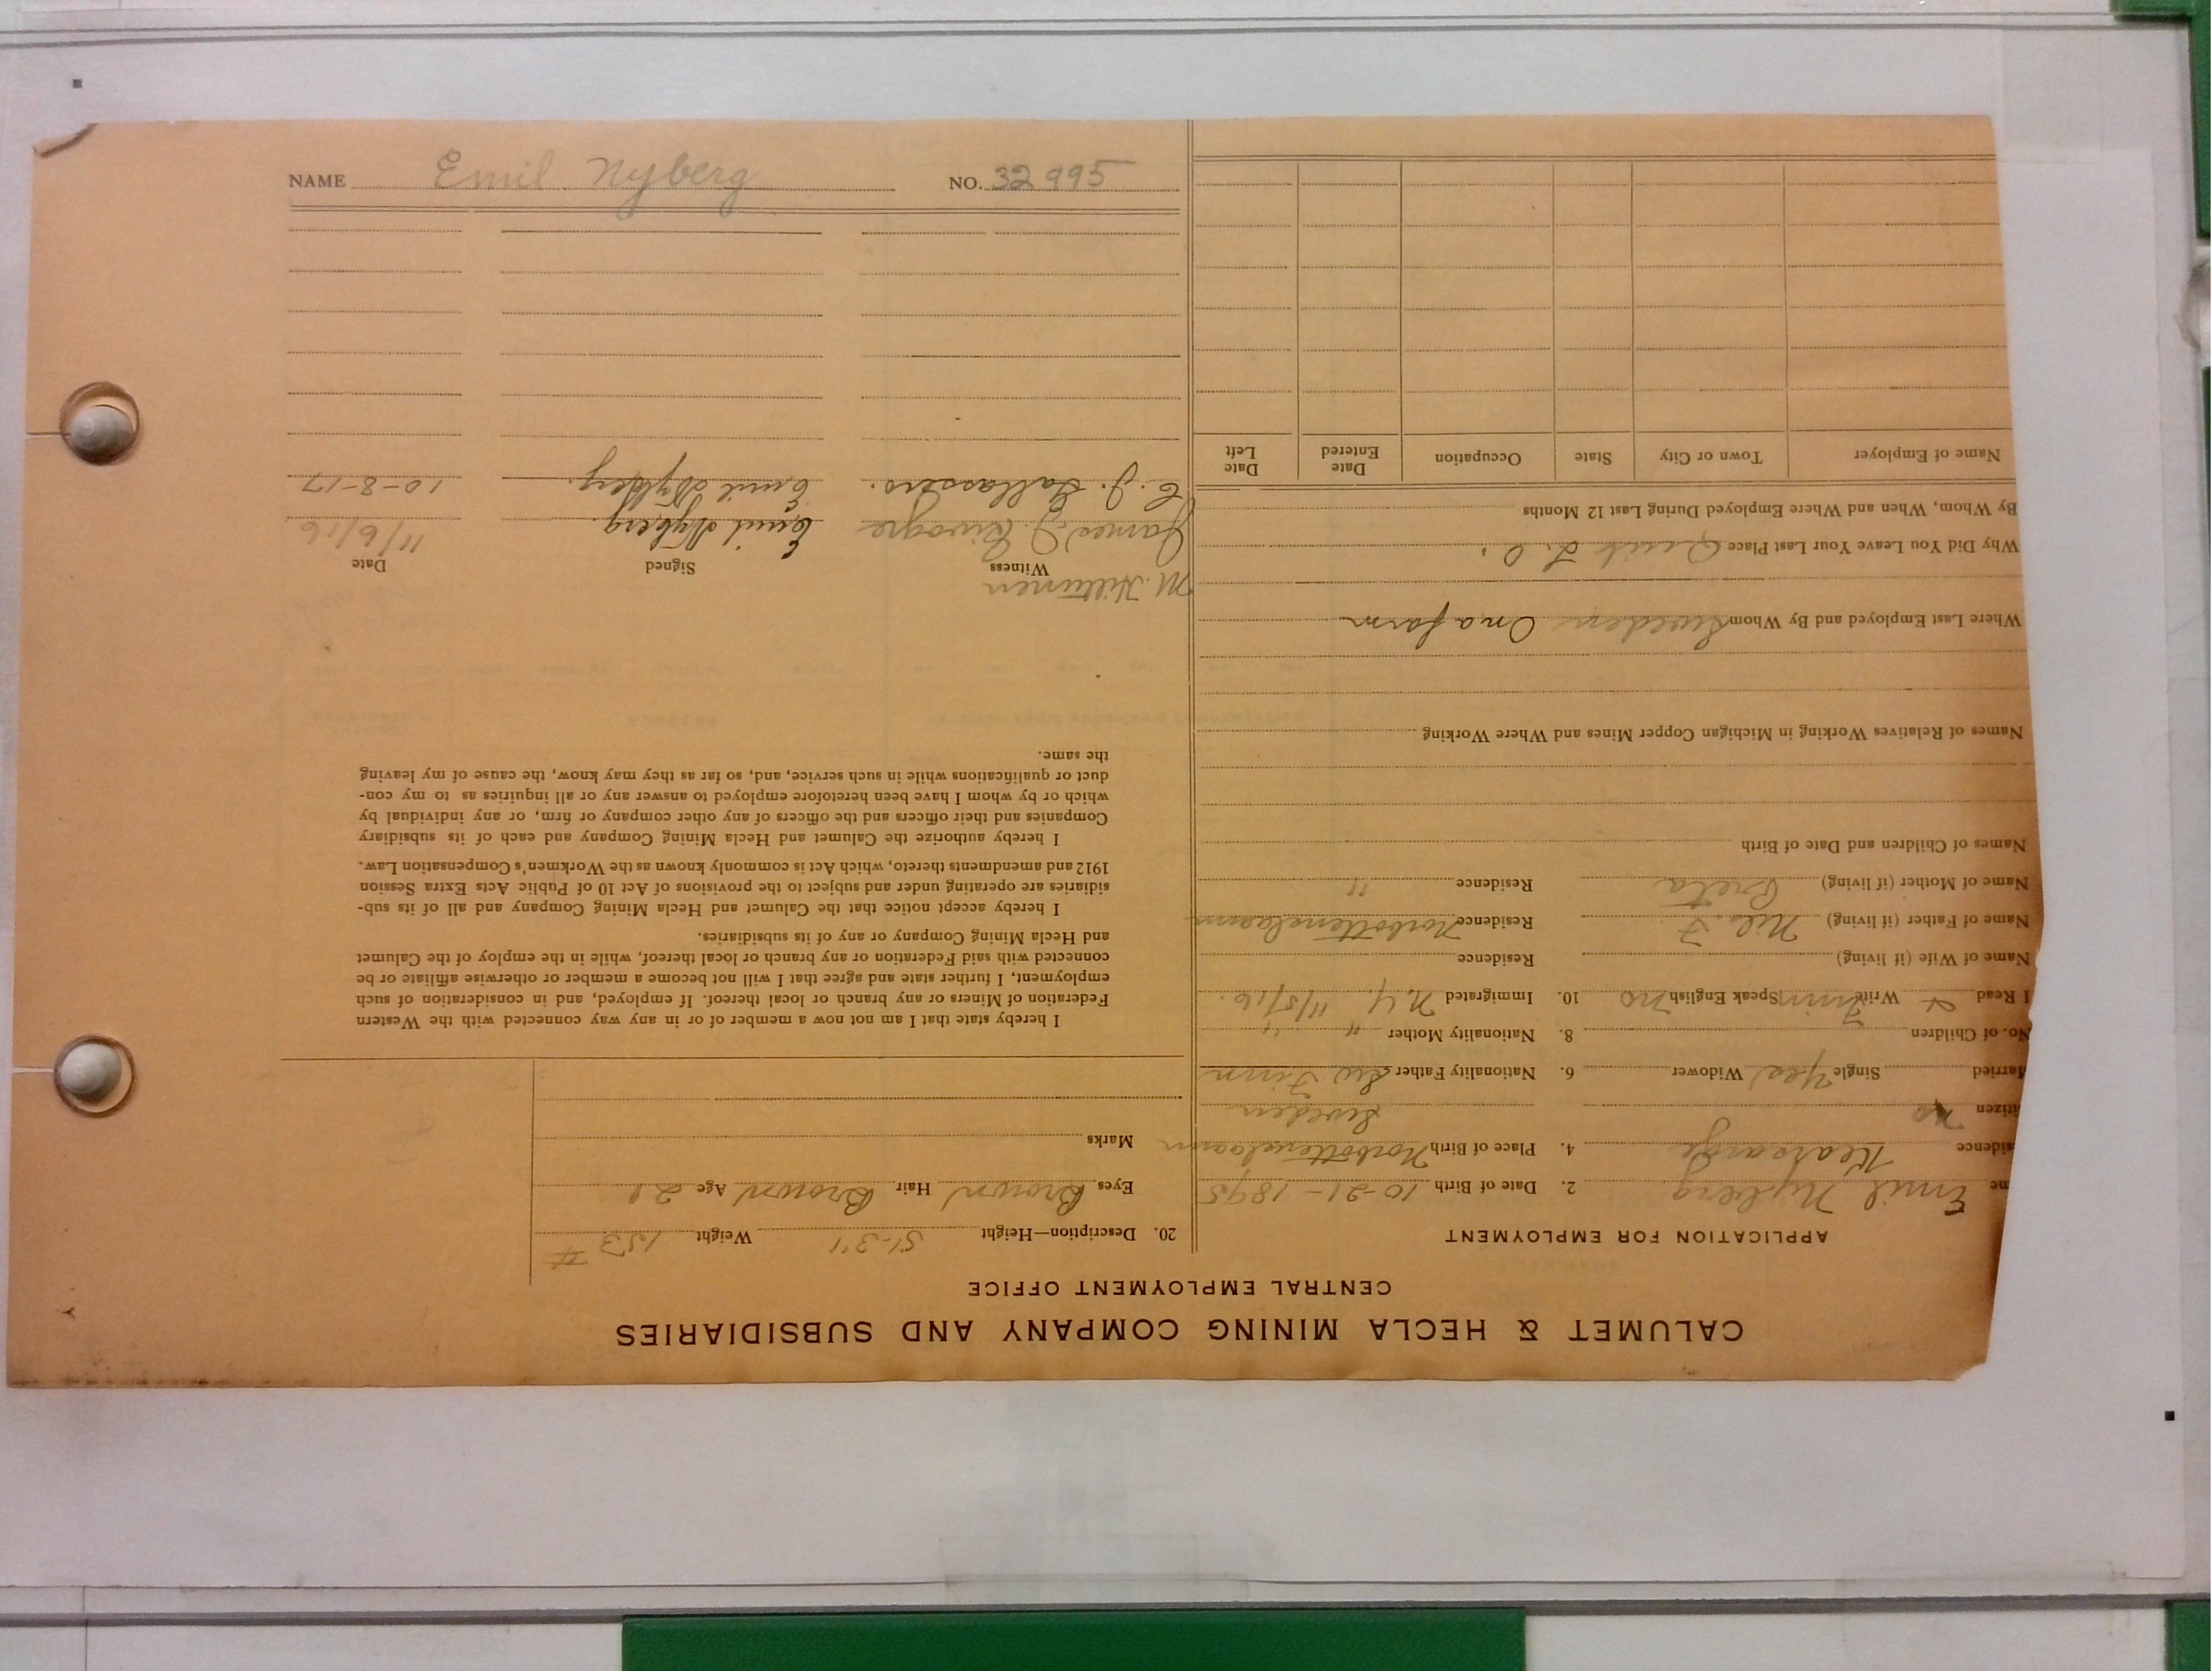 CALUMET & HECLA MINING COMPANY AND SUBSIDIARIES
CENTRAL EMPLOYMENT OFFICE
APPLICATION FOR EMPLOYMENT
me Emil Nyberg 2. Date of Birth 10-21-1895
sidence Kearsarge 4. Place of Birth Norbottenslaann
itizen no Sweden
arried Single Yes Widower 6. Nationality Father Sw Finn
No. of Children 8. Nationality Mother " "
I Read & Write Finn Speak English no 10. Immigrated N.Y. 11/5/16.
Name of Wife (if living) Residence
Name of Father (if living) Nils F Residence Norbottenslaann
Name of Mother (if living) Greta Residence "
Names of Children and Date of Birth
Names of Relatives Working in Michigan Copper Mines and Where Working
Where Last Employed and By Whom Sweden On a farm
Why Did You Leave Your Last Place Quit
By Whom, When and Where Employed During Last 12 Months
Name of Employer Town or City State Occupation Date Entered Date Left
20. Description—Height 5'-3" Weight 153 #
Eyes Brown Hair Brown Age 21
Marks
I hereby state that I am not now a member of or in any way connected with the Western
Federation of Miners or any branch or local thereof. If employed, and in consideration of such
employment, I further state and agree that I will not become a member or otherwise affiliate or be
connected with said Federation or any branch or local thereof, while in the employ of the Calumet
and Hecla Mining Company or any of its subsidiaries.
I hereby accept notice that the Calumet and Hecla Mining Company and all of its sub-
sidiaries are operating under and subject to the provisions of Act 10 of Public Acts Extra Session
1912 and amendments thereto, which Act is commonly known as the Workmen's Compensation Law.
I hereby authorize the Calumet and Hecla Mining Company and each of its subsidiary
Companies and their officers and the officers of any other company or firm, or any individual by
which or by whom I have been heretofore employed to answer any or all inquiries as to my con-
duct or qualifications while in such service, and, so far as they may know, the cause of my leaving
the same.
M. Hiltunen
Witness Signed Date
James Emil Nyberg. 11/6/16
Emil Nyberg. 10-8-17
NAME Emil Nyberg NO. 32995